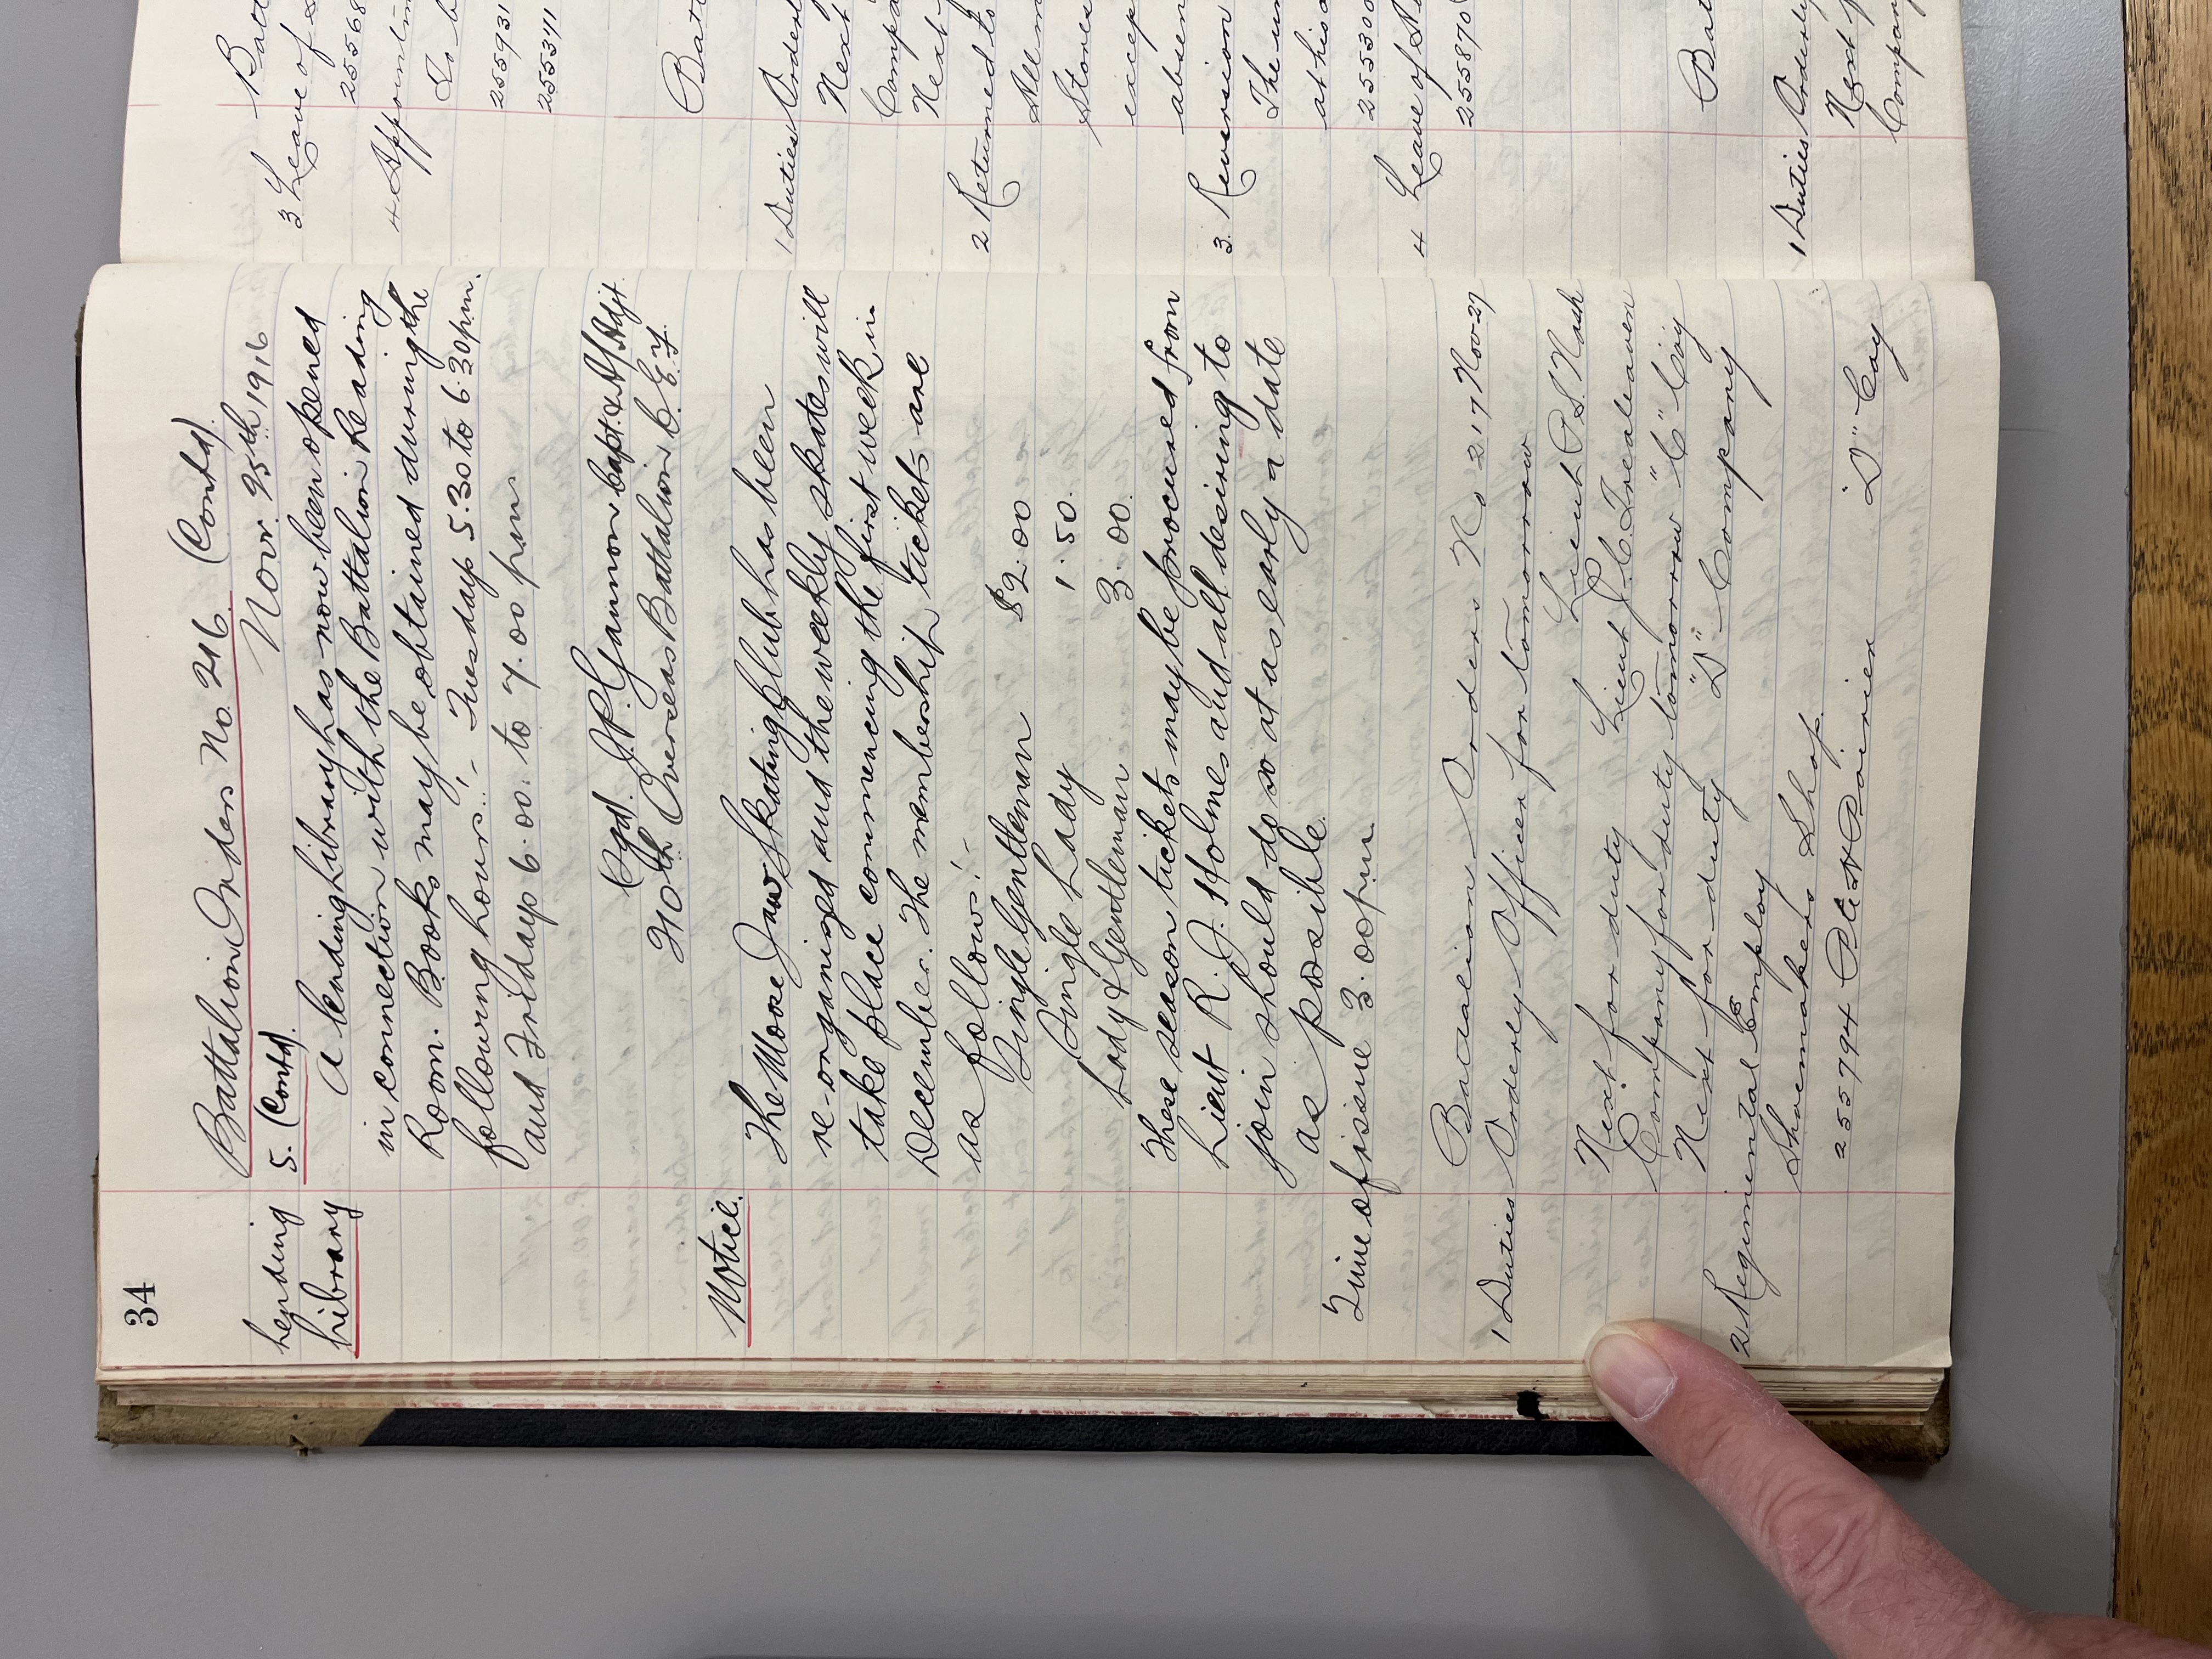 34
Battalion Orders No. 216. (Contd).
Novr. 25th 1916
Lending
Library
5. (Contd).
A lending Library has now been opened
in connection with the Battalion Reading
Room. Books may be obtained during the
following hours:- Tuesdays 5.30 to 6.30 pm.
and Fridays 6.00. to 7.00 pm
(Sgd). J.P. Gannon Capt. & A/Adjt.
210th Overseas Battalion C.E.F.
Notice.
The Moose Jaw Skating Club has been
re-organized and the weekly skates will
take place commencing the first week in
December. The membership tickets are
as follows:-
Single Gentleman $2.00
Single Lady 1.50.
Lady & Gentleman 3.00.
These season tickets may be procured from
Lieut R.J. Holmes and all desiring to
join should do so at as early a date
as possible.
Time of issue 3.00 pm.
Battalion Orders No 217 Nov-27
1 Duties Orderly Officer for tomorrow
Lieut P.S. Nash
Next for duty Lieut J.C. Trealeaven
Company for duty tomorrow "C" Coy
Next for duty "D" Company
2 Regimental Employ
Shoemakers Shop.
255794 Pte H Poirier "D" Coy
Batt
3 Leave of
25568
4 Appointm
To b
255931
255341
Batt
1 Duties Orderl
Next
Compa
Next
2 Returned to
All m
Stores
excep
absen
3. Reversion
The un
at his o
255300
4 Leave of
255870
Bat
1 Duties Orderly
Next f
Compan